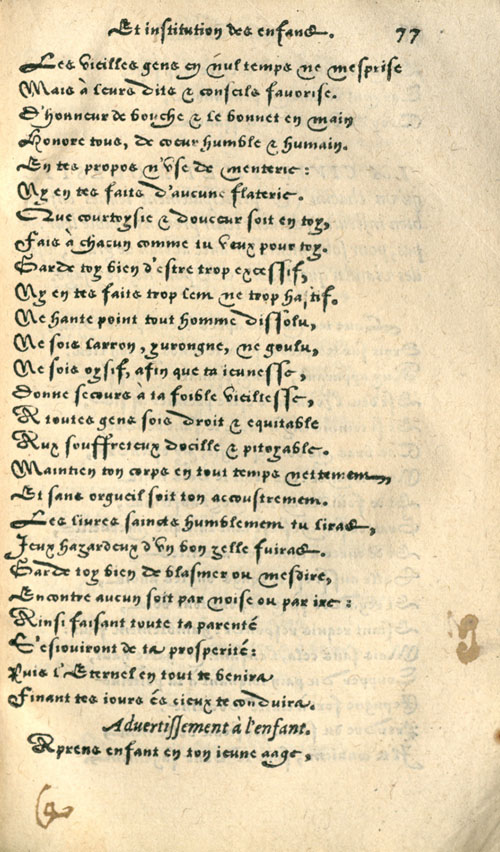 Et institution des enfans. 77
Les vieilles gens en nul temps ne mesprise
Mais à leurs dits & conseils favorise.
D'honneur de bouche & le bonnet en main
Honore tous, de cœur humble & humain.
En tes propos n'vse de menterie:
Ny en tes faits d'aucune flaterie.
Que courtoysie & douceur soit en toy,
Fais à chacun comme tu veux pour toy.
Garde toy bien d'estre trop excessif,
Ny en tes faits trop lent ne trop hastif.
Ne hante point tout homme dissolu,
Ne sois larron, yurongne, ne goulu,
Ne sois oysif, afin que ta ieunesse,
Donne secours à ta foible vieillesse,
A toutes gens sois droit & equitable
Aux souffreteux docille & pitoyable.
Maintien ton corps en tout temps nettement
Et sans orgueil soit ton accoustrement.
Les livres saincts humblement tu liras,
Jeux hazardeux d'vn bon zelle fuiras.
Garde toy bien de blasmer ou mesdire,
Encontre aucun soit par noise ou par ire:
Ainsi faisant toute ta parenté
S'esiouiront de ta prosperité:
Puis l'Eternel en tout te benira
Finant tes iours és cieux te conduira.
Advertissement à l'enfant.
Aprens enfant en ton ieune aage,